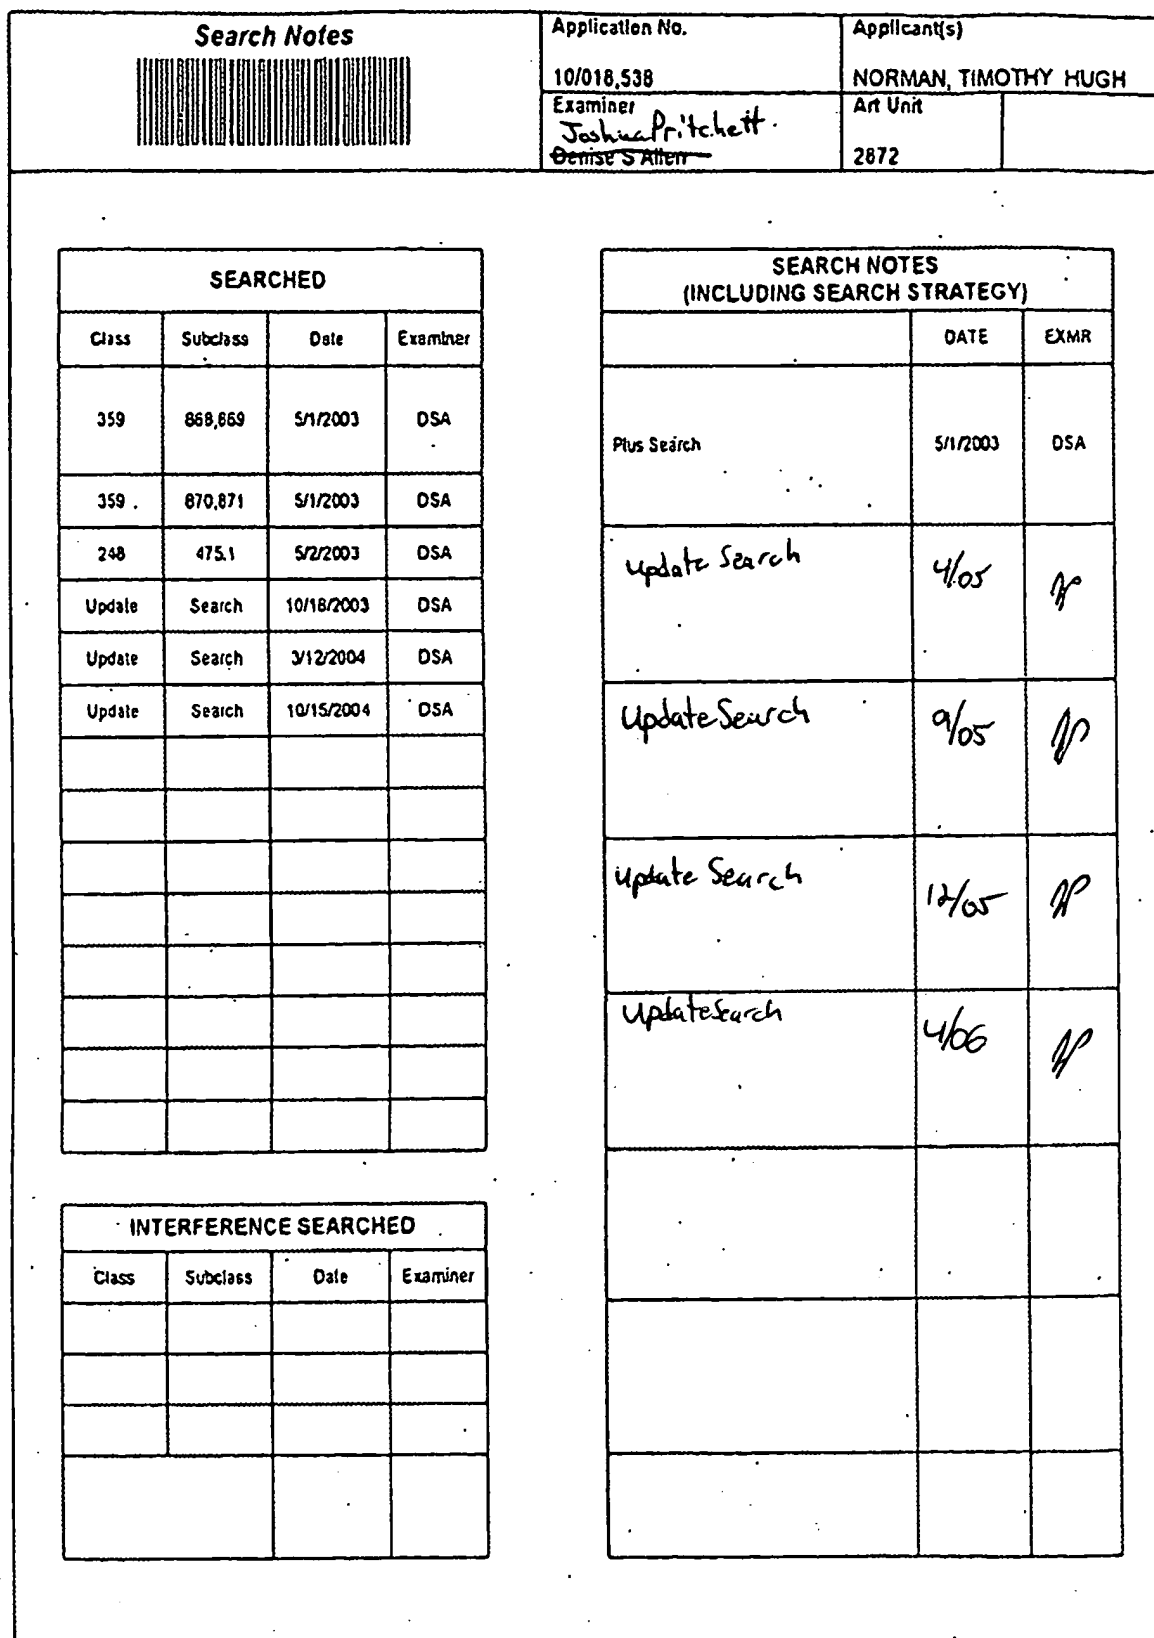 Search Notes
Application No.
10/018,538
Applicant(s)
NORMAN, TIMOTHY HUGH
Examiner
Joshua Pritchett
Denise S Allen
Art Unit
2872
SEARCHED
Class Subclass Date Examiner
359 868,869 5/1/2003 DSA
359 870,871 5/1/2003 DSA
248 475.1 5/2/2003 DSA
Update Search 10/18/2003 DSA
Update Search 3/12/2004 DSA
Update Search 10/15/2004 DSA
INTERFERENCE SEARCHED
Class Subclass Date Examiner
SEARCH NOTES
(INCLUDING SEARCH STRATEGY)
DATE EXMR
Plus Search 5/1/2003 DSA
Update Search 4/05 JP
Update Search 9/05 JP
Update Search 12/05 JP
Update Search 4/06 JP